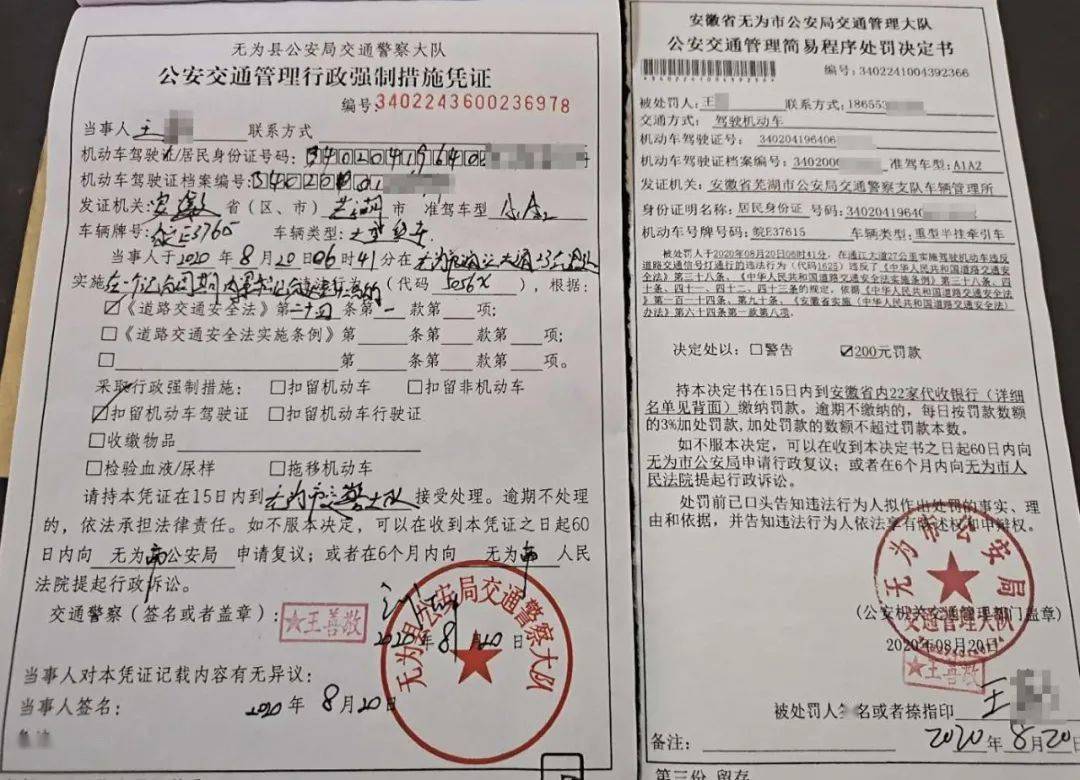 无为县公安局交通警察大队
公安交通管理行政强制措施凭证
编号:3402243600236978
当事人 王 联系方式
机动车驾驶证/居民身份证号码:34020419640
机动车驾驶证档案编号:340200
发证机关:安徽 省(区、市) 芜湖 市 准驾车型 A1A2
车辆牌号:皖E37615 车辆类型:大型
当事人于2020年8月20日06时41分在无为市通江大道
实施在一个记分周期内累积记分达到12分的(代码 5056X),根据:
☑《道路交通安全法》第二十四条第一款第 项;
☐《道路交通安全法实施条例》第 条第 款第 项;
☐ 第 条第 款第 项。
采取行政强制措施: ☐扣留机动车 ☐扣留非机动车
☑扣留机动车驾驶证 ☐扣留机动车行驶证
☐收缴物品
☐检验血液/尿样 ☐拖移机动车
请持本凭证在15日内到无为市交警大队接受处理。逾期不处理
的,依法承担法律责任。如不服本决定,可以在收到本凭证之日起60
日内向 无为市公安局 申请复议;或者在6个月内向 无为市 人民
法院提起行政诉讼。
交通警察(签名或者盖章): ★王善敬
2020年8月20日
无为县公安局交通警察大队
当事人对本凭证记载内容有无异议:
当事人签名: 2020年8月20日
备注
安徽省无为市公安局交通管理大队
公安交通管理简易程序处罚决定书
*3402241004392366*
编号:3402241004392366
被处罚人:王 联系方式:186553
交通方式: 驾驶机动车
机动车驾驶证号: 340204196406
机动车驾驶证档案编号:3402000 准驾车型:A1A2
发证机关:安徽省芜湖市公安局交通警察支队车辆管理所
身份证明名称:居民身份证 号码:34020419640
机动车号牌号码:皖E37615 车辆类型:重型半挂牵引车
被处罚人于2020年08月20日06时41分,在通江大道27公里实施驾驶机动车违反
道路交通信号灯通行的违法行为(代码1625)违反了《中华人民共和国道路交通安
全法》第三十八条、《中华人民共和国道路交通安全法实施条例》第三十八条、四
十条、四十一、四十二、四十三条的规定。依据《中华人民共和国道路交通安全法》
第一百一十四条、第九十条、《安徽省实施〈中华人民共和国道路交通安全法〉
办法》第六十四条第一款第八项。
决定处以:☐警告 ☑200元罚款
持本决定书在15日内到安徽省内22家代收银行(详细
名单见背面)缴纳罚款。逾期不缴纳的,每日按罚款数额
的3%加处罚款,加处罚款的数额不超过罚款本数。
如不服本决定,可以在收到本决定书之日起60日内向
无为市公安局申请行政复议;或者在6个月内向无为市人
民法院提起行政诉讼。
处罚前已口头告知违法行为人拟作出处罚的事实、理
由和依据,并告知违法行为人依法享有陈述权和申辩权。
无为市公安局
交通管理大队
(公安机关交通管理部门盖章)
2020年08月20日
★王善敬
被处罚人签名或者捺指印 王
2020年8月20日
备注:
第三份 留存